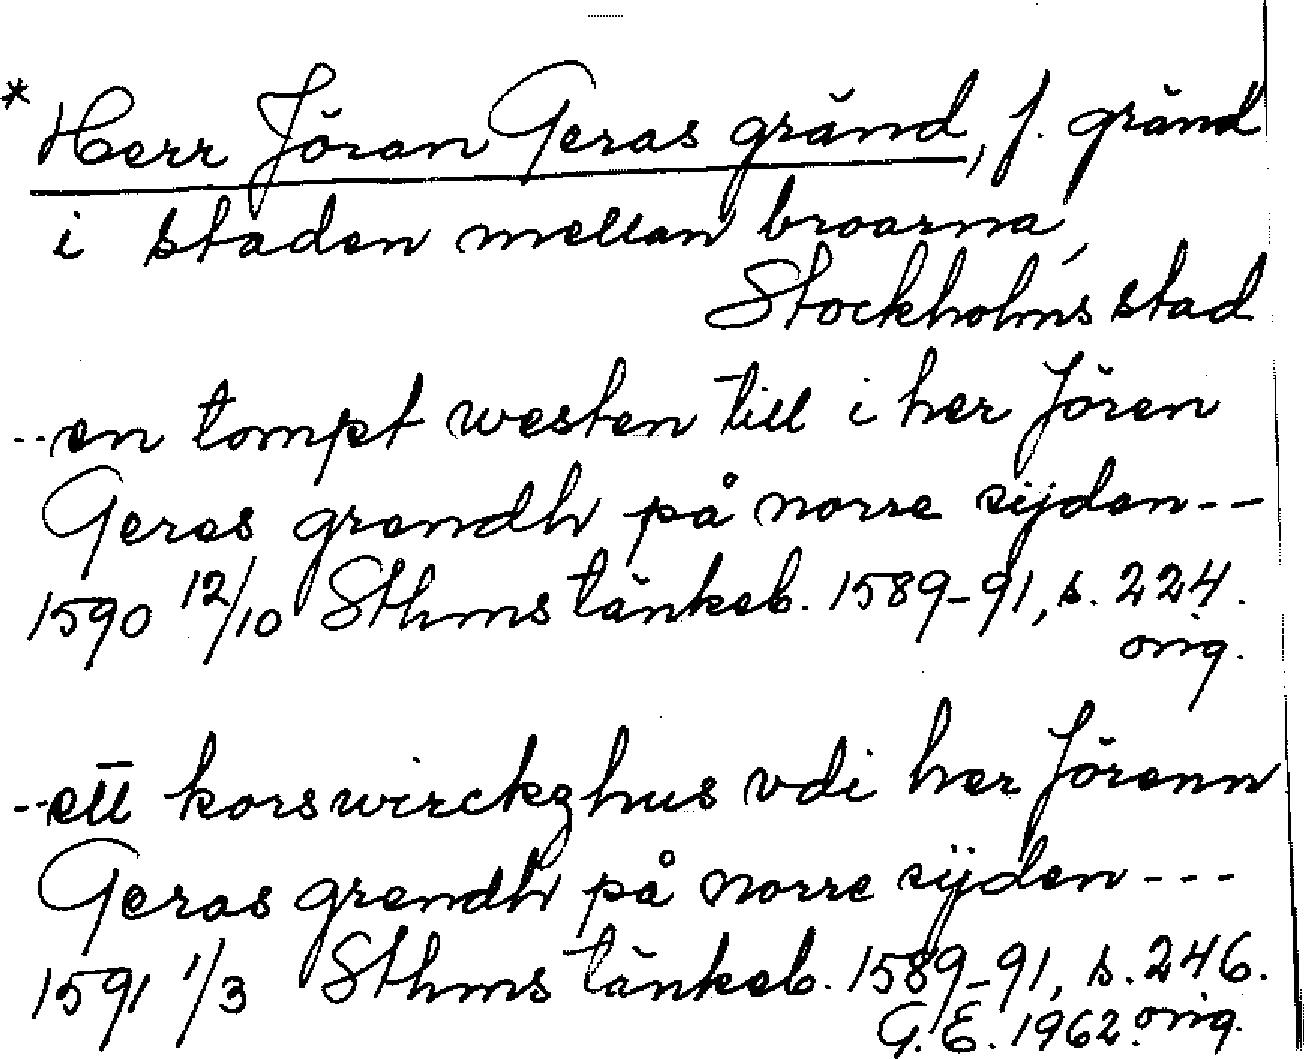 * Herr Jöran Geras gränd, f. gränd
i staden mellan broarna,
Stockholms stad
--en tompt westen till i her Jören
Geres grendh på norre sijden--
1590 12/10 Sthms tänkeb. 1589-91, s. 224.
orig.
--ett korswirckzhus vdi her Jörenn
Geras grendh på norre sijden---
1591 1/3 Sthms tänkeb. 1589-91, s. 246.
G. E. 1962. orig.